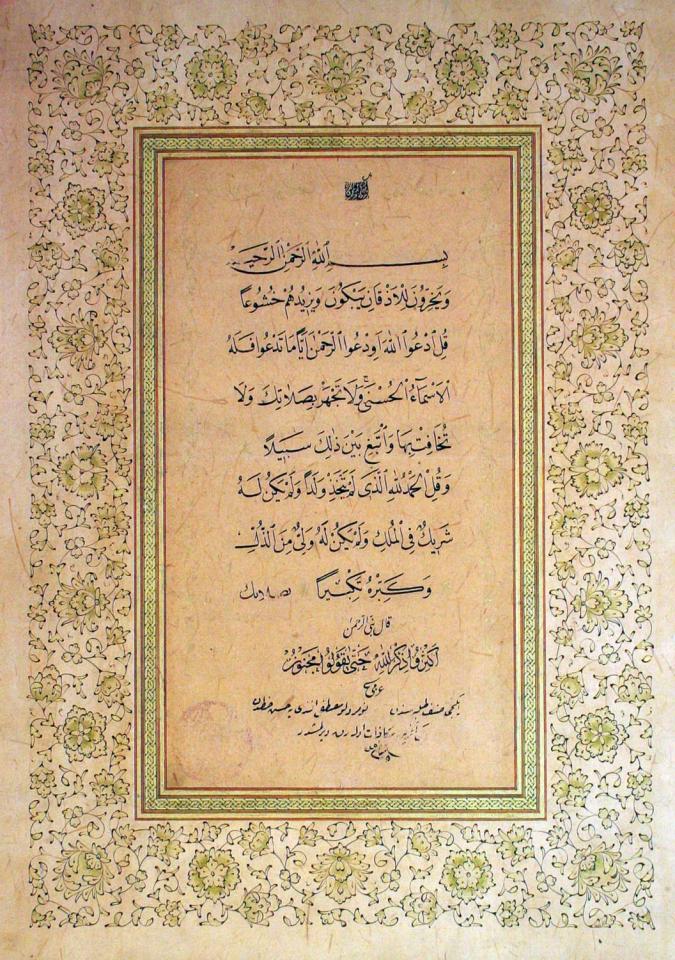 بسم الله الرحمن الرحيم
وَيَخِرُّونَ لِلْاَذْقَانِ يَبْكُونَ وَيَزِيدُهُمْ خُشُوعًا
قُلِ ادْعُوا اللهَ اَوِ ادْعُوا الرَّحْمٰنَ اَيًّا مَا تَدْعُوا فَلَهُ
الْاَسْمَآءُ الْحُسْنٰى وَلَا تَجْهَرْ بِصَلَاتِكَ وَلَا
تُخَافِتْ بِهَا وَابْتَغِ بَيْنَ ذٰلِكَ سَبِيلًا
وَقُلِ الْحَمْدُ لِلّٰهِ الَّذِى لَمْ يَتَّخِذْ وَلَدًا وَلَمْ يَكُنْ لَهُ
شَرِيكٌ فِى الْمُلْكِ وَلَمْ يَكُنْ لَهُ وَلِىٌّ مِنَ الذُّلِّ
وَكَبِّرْهُ تَكْبِيرًا
قال نبى الرحمن
اَكْثِرُوا ذِكْرَ اللهِ حَتّٰى يَقُولُوا مَجْنُونٌ